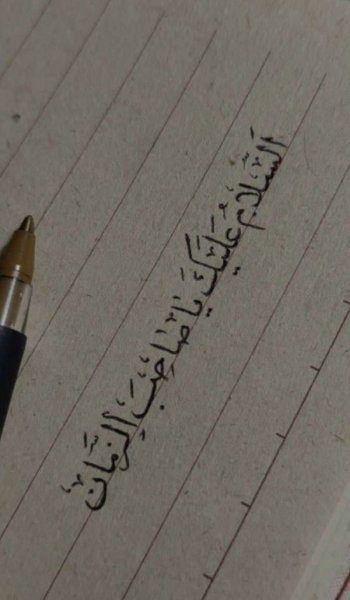 اَلسَّلامُ عَلَيْكَ يَا صَاحِبَ الزَّمَانْ